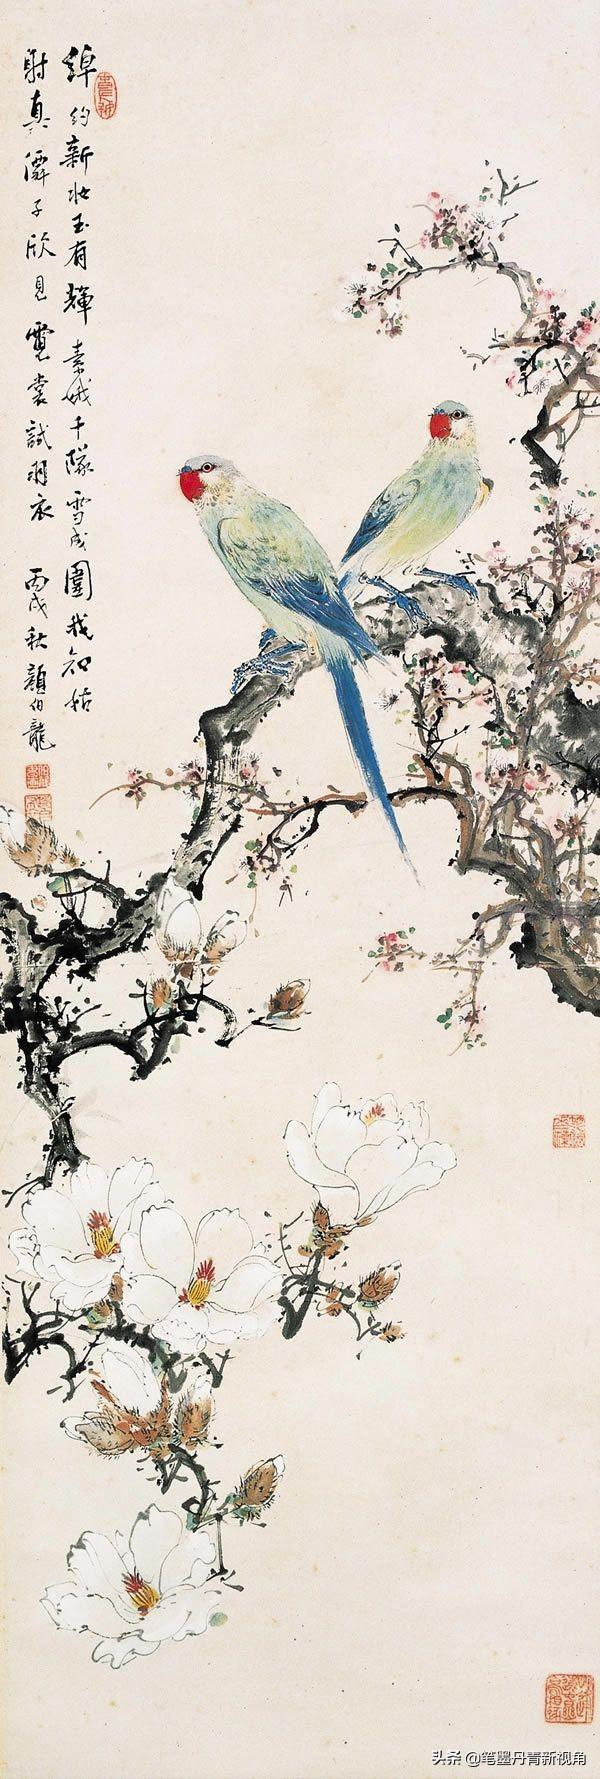 綽約新妆玉有輝素娥千隊雪成圍我知姑
射真僊子欣見霓裳試羽衣 丙戌秋顏伯龍
头条 @笔墨丹青新视角